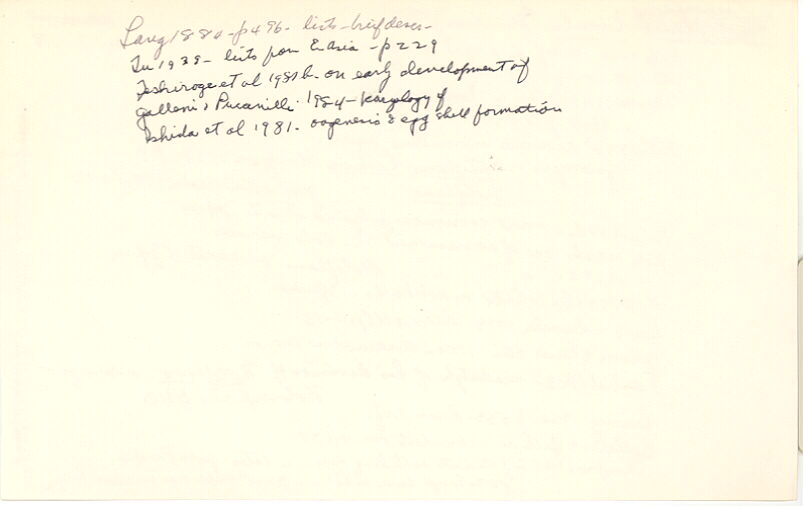 Lang 1884 - p496 - lists - brief descr -
Tu 1939 - lists from E Asia - p229
Teshiroge et al 1981b. on early development of
Galleni & Puccinelli 1984 - karyology of
Ishida et al 1981 - oogenesis & egg shell formation